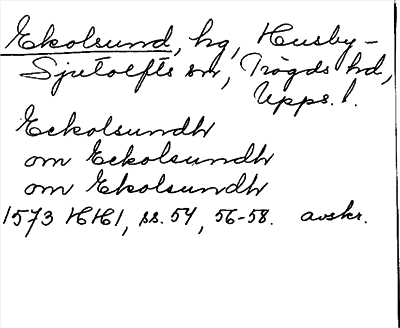 Ekolsund, kg, Husby-
Sjutolfts sn, Trögds hd,
Upps. l.
Eckolsundh
om Eckolsundh
om Ekolsundh
1573 HH1, ss. 54, 56-58. avskr.